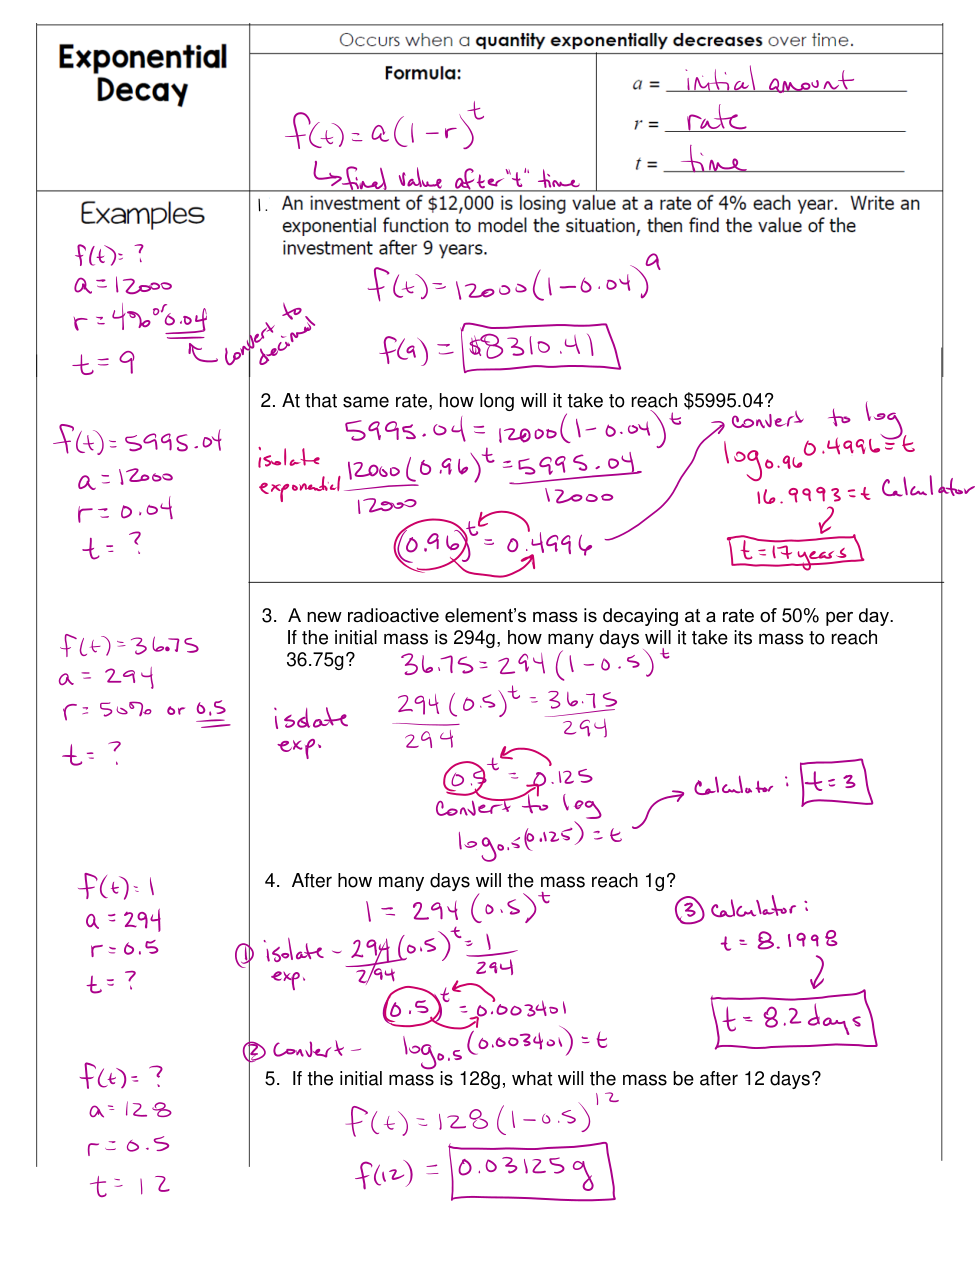 Exponential
Decay
Occurs when a quantity exponentially decreases over time.
Formula:
f(t) = a(1-r)^t
↳ final value after "t" time
a = initial amount
r = rate
t = time
Examples
f(t) = ?
a = 12000
r = 4% or 0.04
convert to
decimal
t = 9
1. An investment of $12,000 is losing value at a rate of 4% each year. Write an
exponential function to model the situation, then find the value of the
investment after 9 years.
f(t) = 12000(1-0.04)^9
f(9) = $8310.41
2. At that same rate, how long will it take to reach $5995.04?
f(t) = 5995.04
a = 12000
r = 0.04
t = ?
5995.04 = 12000(1-0.04)^t
isolate
exponential
12000(0.96)^t = 5995.04
12000 12000
(0.96)^t = 0.4996
convert to log
log0.96 0.4996 = t
16.9993 = t Calculator
t = 17 years
3. A new radioactive element's mass is decaying at a rate of 50% per day.
If the initial mass is 294g, how many days will it take its mass to reach
36.75g?
f(t) = 36.75
a = 294
r = 50% or 0.5
t = ?
36.75 = 294(1-0.5)^t
isolate
exp.
294(0.5)^t = 36.75
294 294
0.5^t = 0.125
Convert to log
log0.5(0.125) = t
Calculator: t = 3
4. After how many days will the mass reach 1g?
f(t) = 1
a = 294
r = 0.5
t = ?
1 = 294(0.5)^t
① isolate - 294(0.5)^t = 1
exp. 294 294
(0.5)^t = 0.003401
② Convert - log0.5(0.003401) = t
③ Calculator:
t = 8.1998
t = 8.2 days
5. If the initial mass is 128g, what will the mass be after 12 days?
f(t) = ?
a = 128
r = 0.5
t = 12
f(t) = 128(1-0.5)^12
f(12) = 0.03125 g